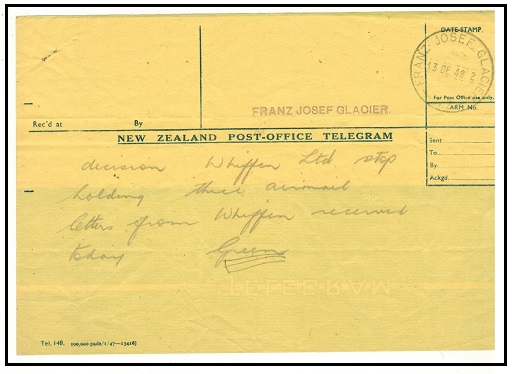 DATE-STAMP.
FRANZ JOSEF GLACIER
13 DE 48
For Post Office use only.
FRANZ JOSEF GLACIER.
Rec'd at By
NEW ZEALAND POST-OFFICE TELEGRAM
Sent
To
By
Ackgd.
decision Whiffen Ltd stop
holding three airmail
letters from Whiffen received
today Green
TELEGRAM
Tel. 148.